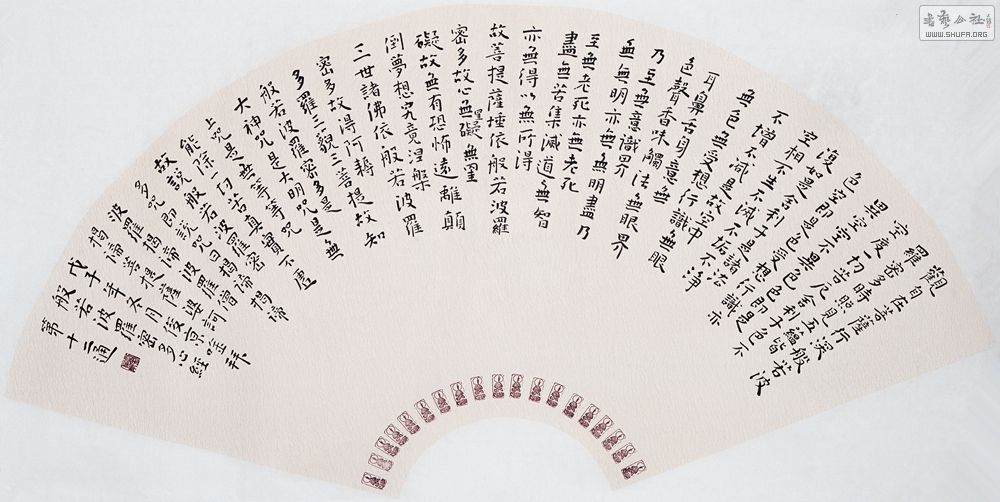 觀自在菩薩行深般若波
羅密多時照見五蘊皆
空度一切苦厄舍利子色不
異空空不異色色即是
色空即是色受想行識亦
復如是舍利子是諸法
空相不生不滅不垢不淨
不增不減是故空中
無色無受想行識無眼
耳鼻舌身意無
色聲香味觸法無眼界
乃至無意識界
無無明亦無無明盡乃
至無老死亦無老死
盡無苦集滅道無智
亦無得以無所得
故菩提薩埵依般若波羅
密多故心無罣礙無罣
礙故無有恐怖遠離顛
倒夢想究竟涅槃
三世諸佛依般若波羅
密多故得阿耨
多羅三藐三菩提故知
般若波羅密多是
大神咒是大明咒是無
上咒是無等等咒
能除一切苦真實不虛
故說般若波羅密
多咒即說咒曰揭諦揭諦
波羅揭諦波羅僧
揭諦菩提薩婆訶
戊子年冬月俊京拜
般若波羅密多心經
第十二通
WWW.SHUFA.ORG